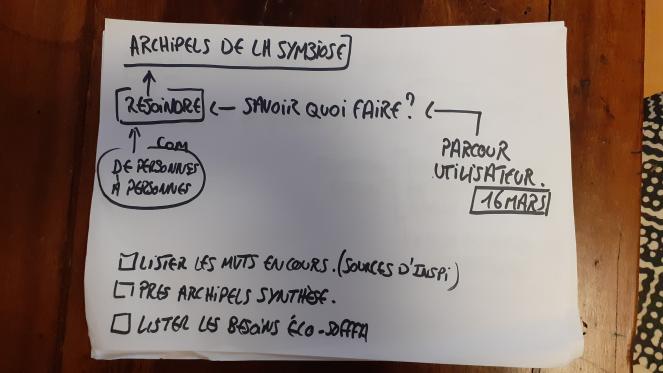 ARCHIPELS DE LA SYMBIOSE
REJOINDRE ← SAVOIR QUOI FAIRE? ←
COM
DE PERSONNES
À PERSONNES
PARCOUR
UTILISATEUR.
16 MARS
LISTER LES MVTS EN COURS. (SOURCES D'INSPI)
PRES ARCHIPELS SYNTHÈSE.
LISTER LES BESOINS ÉCO-